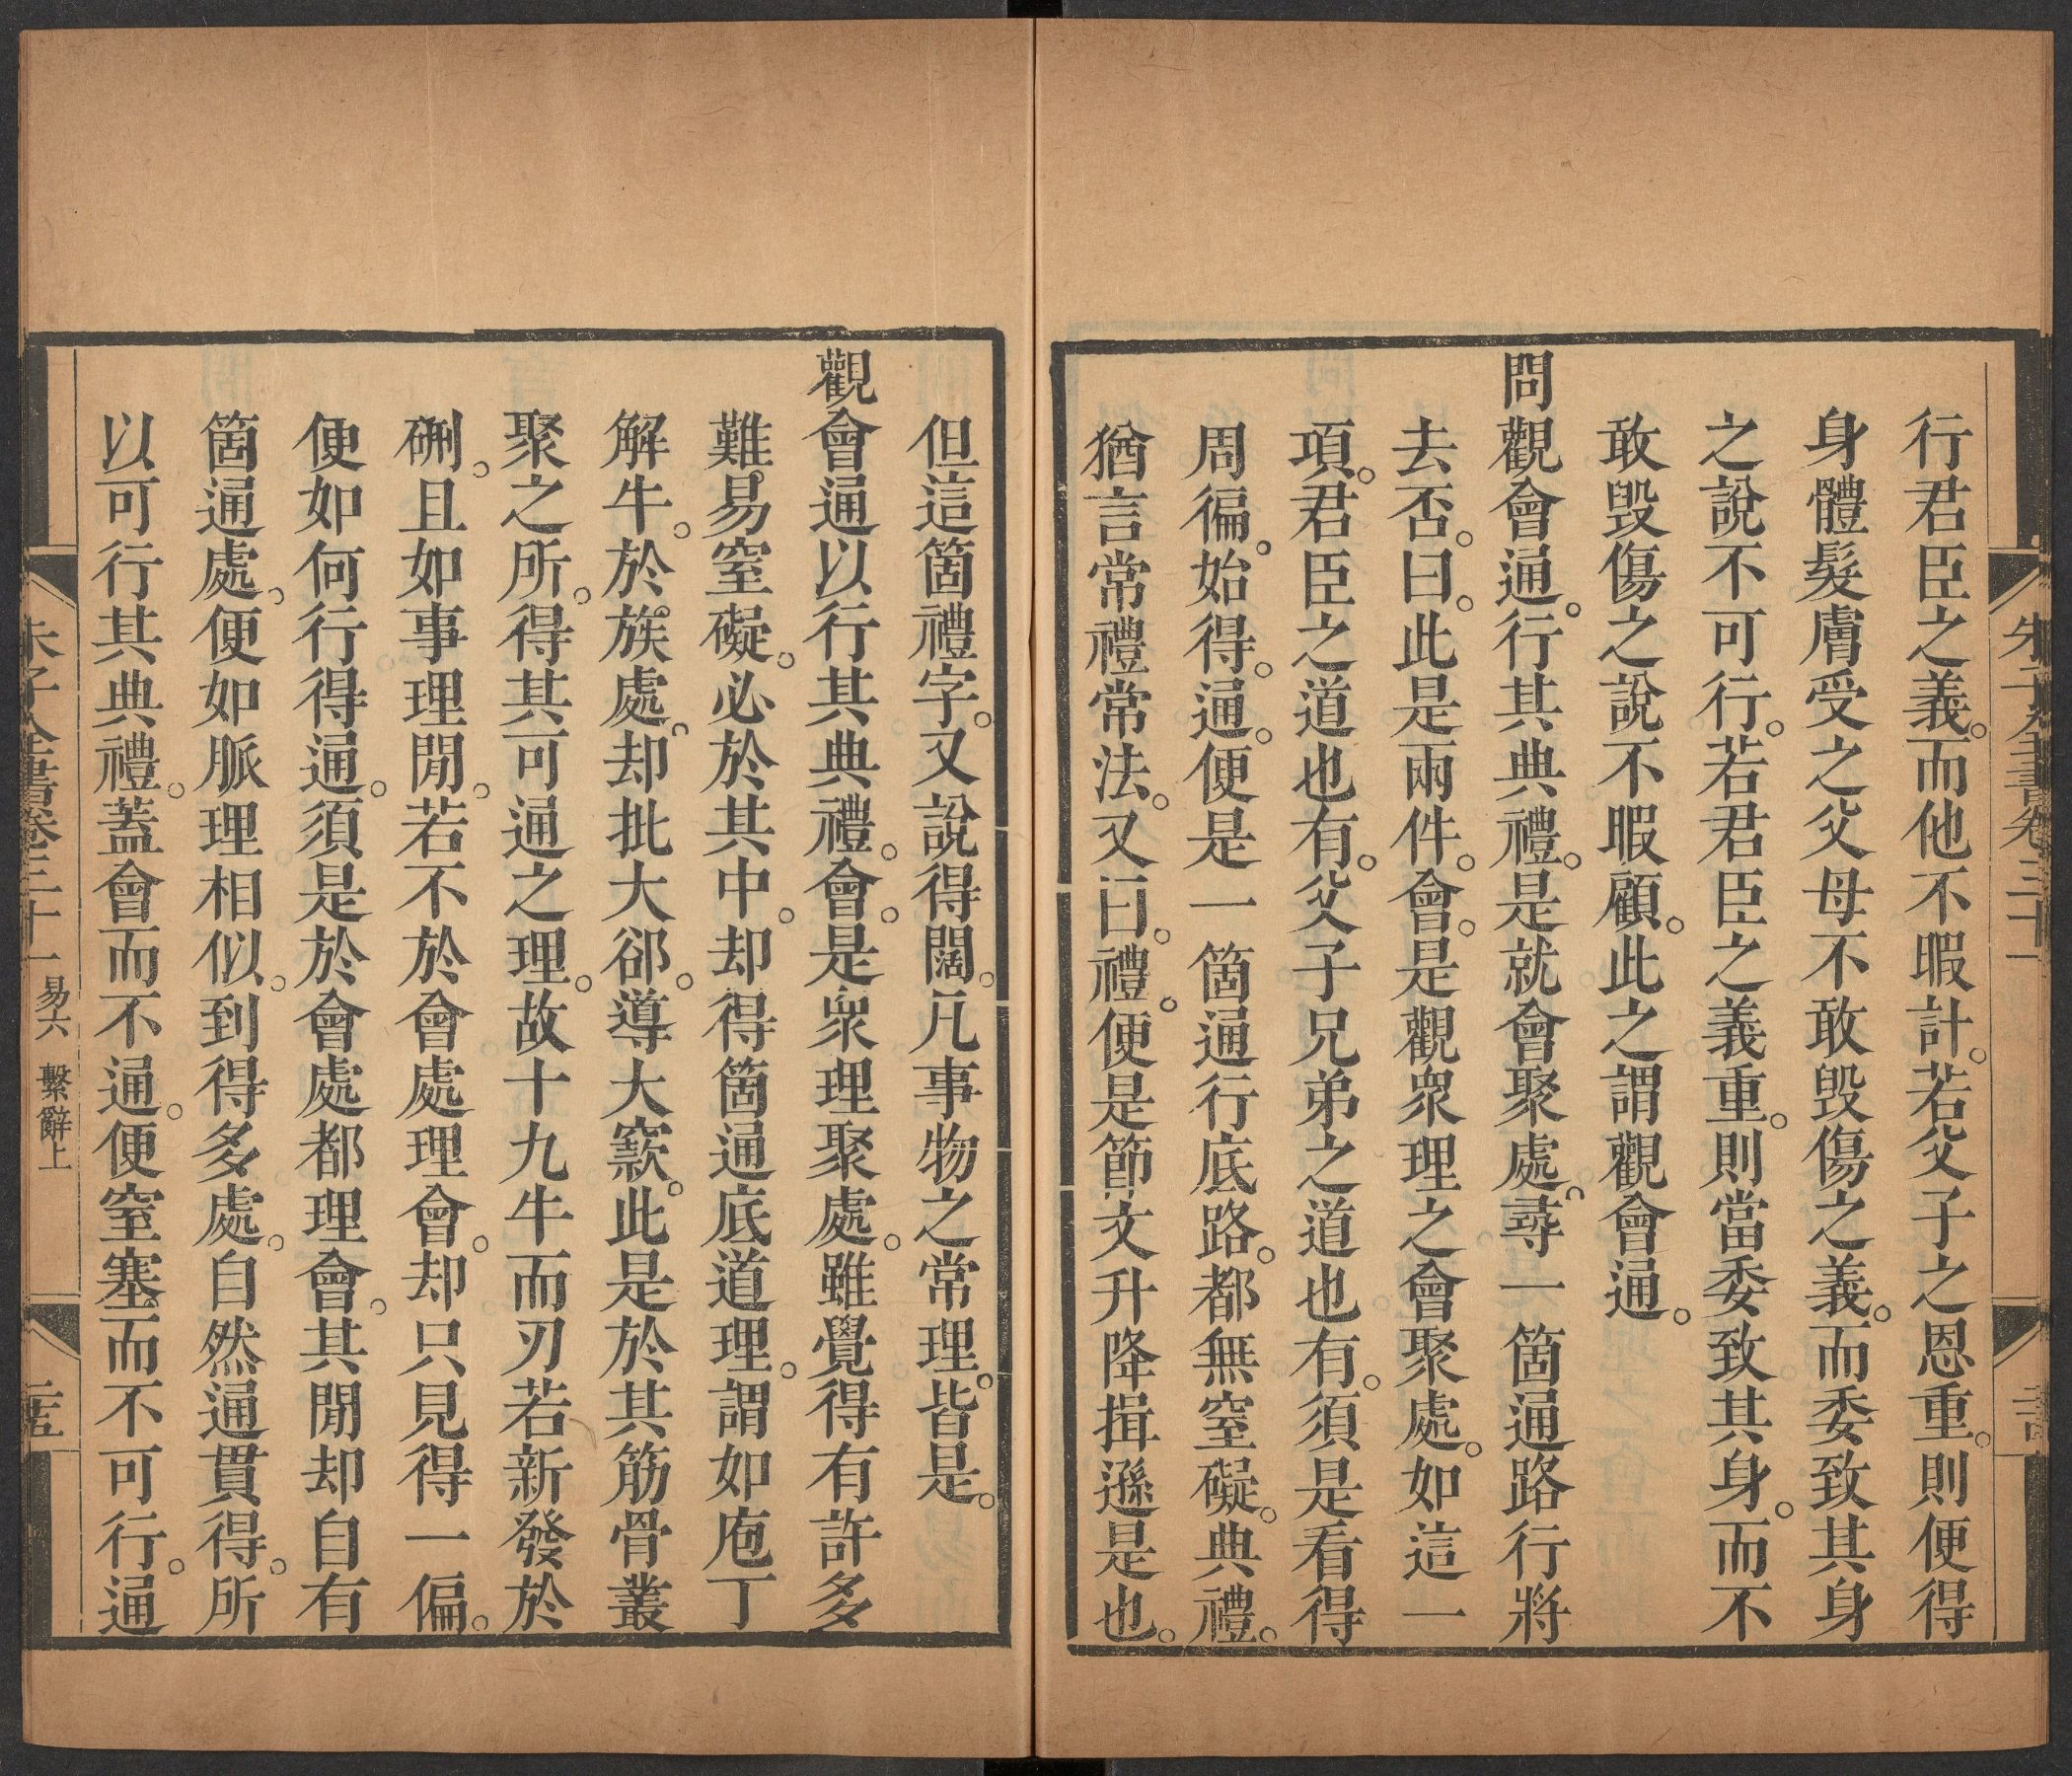 行君臣之義。而他不暇計。若父子之恩重。則便得
身體髮膚受之父母不敢毀傷之義。而委致其身
之說不可行。若君臣之義重。則當委致其身。而不
敢毀傷之說不暇顧。此之謂觀會通。
問觀會通。行其典禮。是就會聚處。尋一箇通路行將
去否。曰。此是兩件。會。是觀衆理之會聚處。如這一
項。君臣之道也有。父子兄弟之道也有。須是看得
周徧。始得。通。便是一箇通行底路。都無窒礙。典禮。
猶言常禮常法。又曰。禮。便是節文升降揖遜是也。
但這箇禮字。又說得闊。凡事物之常理。皆是。
觀會通以行其典禮。會。是衆理聚處。雖覺得有許多
難。易窒礙。必於其中。却得箇通底道理。謂如庖丁
解牛。於族處。却批大郤。導大窾。此是於其筋骨叢
聚之所。得其可通之理。故十九牛而刃若新發於
硎。且如事理閒。若不於會處理會。却只見得一偏。
便如何行得通。須是於會處都理會。其閒却自有
箇通處。便如脈理相似。到得多處。自然通貫得。所
以可行其典禮。蓋會而不通。便窒塞而不可行。通
朱子全書卷三十一 易六 繫辭上